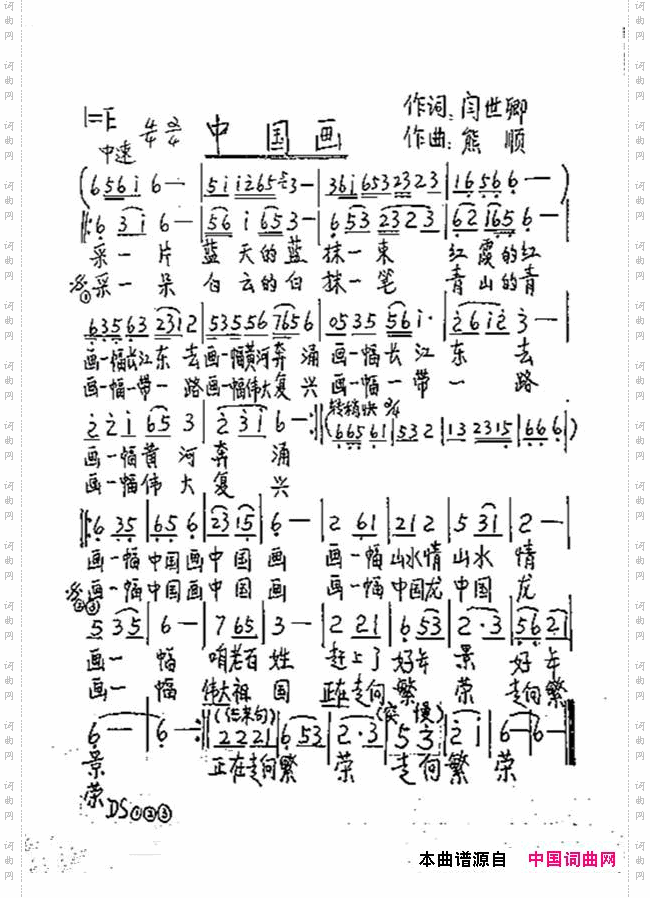 1=E 4/4 2/4 中国画
中速
作词:闫世卿
作曲:熊顺
(6 5 6 i 6 — | 5 i i 2 6 5 5 3 — | 3 6 i 6 5 3 2 3 2 3 | 1 6 5 6 6 — )
‖: 6 3 i 6 — | 5 6 i 6 5 3 — | 6 5 3 2 3 2 3 | 6 2 1 6 5 6 — |
采一片 蓝天的蓝 抹一束 红霞的红
采一朵 白云的白 抹一笔 青山的青
6 3 5 6 3 2 3 1 2 | 5 3 5 5 6 7 6 5 6 | 0 5 3 5 5 6 i · | 2 6 i 2 3 — |
画一幅长江东去 画一幅黄河奔涌 画一幅长江东去
画一幅一带一路 画一幅伟大复兴 画一幅一带一路
转稍快 2/4
2 2 i 6 5 3 | 2 3 i 6 — :‖ (6 6 5 6 1 | 5 3 2 | 1 3 2 3 1 5 | 6 6 6)
画一幅黄河奔涌
画一幅伟大复兴
‖: 6 3 5 | 6 5 6 | 2 3 1 5 | 6 — | 2 6 1 | 2 1 2 | 5 3 1 | 2 — |
画一幅 中国画 中国画 画一幅 山水情 山水情
画一幅 中国画 中国画 画一幅 中国龙 中国龙
5 3 5 | 6 — | 7 6 5 | 3 — | 2 2 1 | 6 5 3 | 2 · 3 | 5 6 2 1 |
画一幅 咱老百姓 赶上了好年景 好年
画一幅 伟大祖国 正在走向繁荣 走向繁
(结束句) (突慢)
6 — | 6 — :‖ 2 2 2 1 | 6 5 3 | 2 · 3 | 5 3 | 2 i | 6 — | 6 — ‖
景 正在走向繁荣 走向繁荣
荣 DS①②③
本曲谱源自 中国词曲网